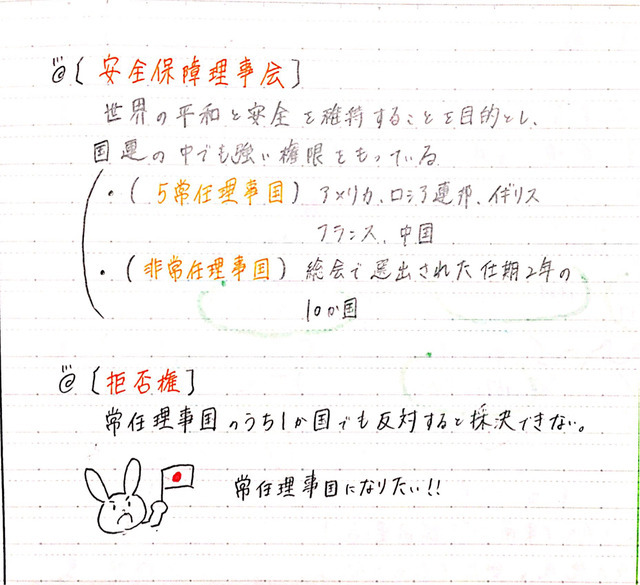 @ [ 安全保障理事会 ]
世界の平和と安全を維持することを目的とし、
国連の中でも強い権限をもっている
・( 5常任理事国 ) アメリカ、ロシア連邦、イギリス
フランス、中国
・( 非常任理事国 ) 総会で選出された任期2年の
10か国
@ [ 拒否権 ]
常任理事国のうち1か国でも反対すると採決できない。
常任理事国になりたい!!